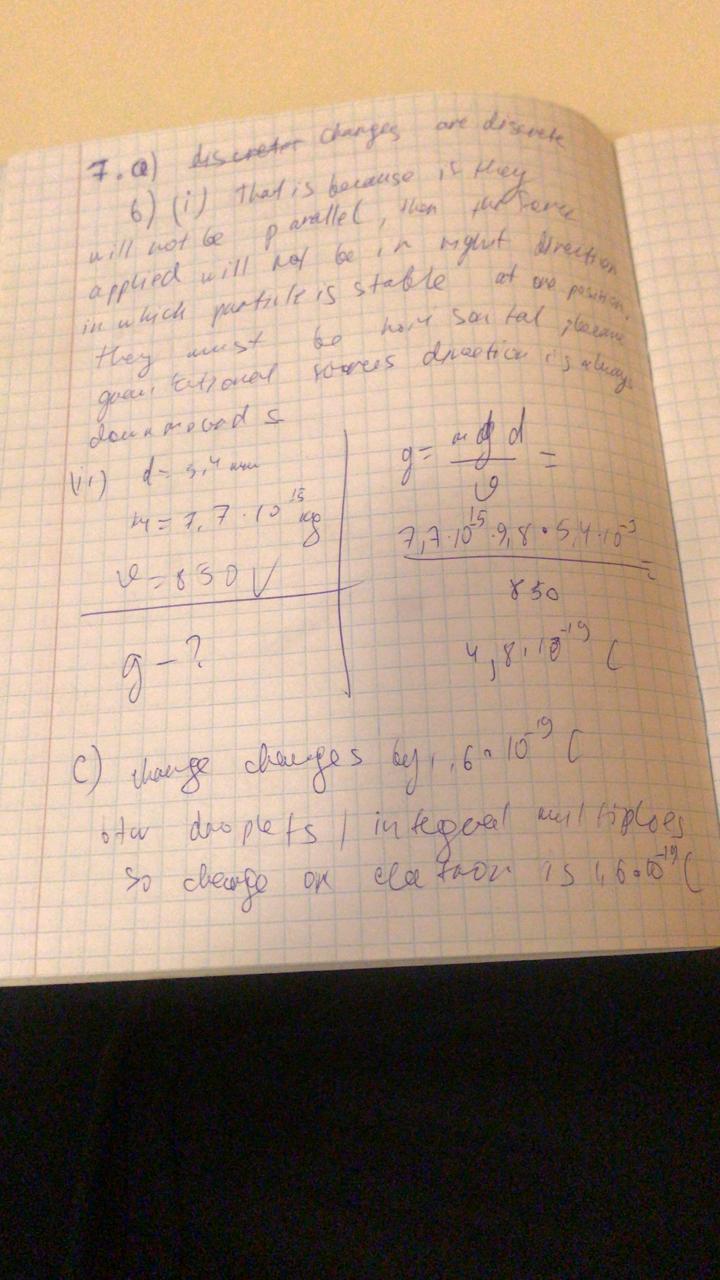 7. a) discrete changes are discrete
b) (i) that is because is they
will not be parallel, then the force
applied will not be in right direction
in which particle is stable at one position,
they must be horisontal, because
gravitational forces direction is always
downwards
(ii) d = 5,4 mm
m = 7,7 · 10^15 kg
U = 850 V
q - ?
q = mgd / U =
7,7·10^15 · 9,8 · 5,4·10^-3 / 850 =
4,8 · 10^-19 C
c) change changes by 1,6 · 10^-19 C
btw droplets / integral multiploes
so charge on electron is 1,6·10^-19 C